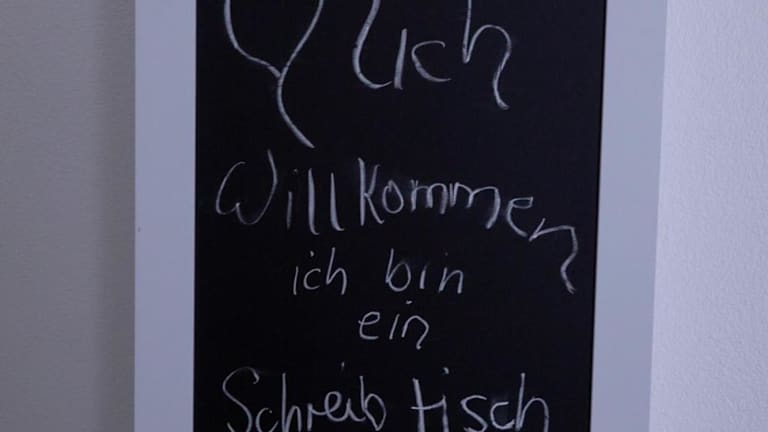 lich
Willkommen
ich bin
ein
Schreib tisch